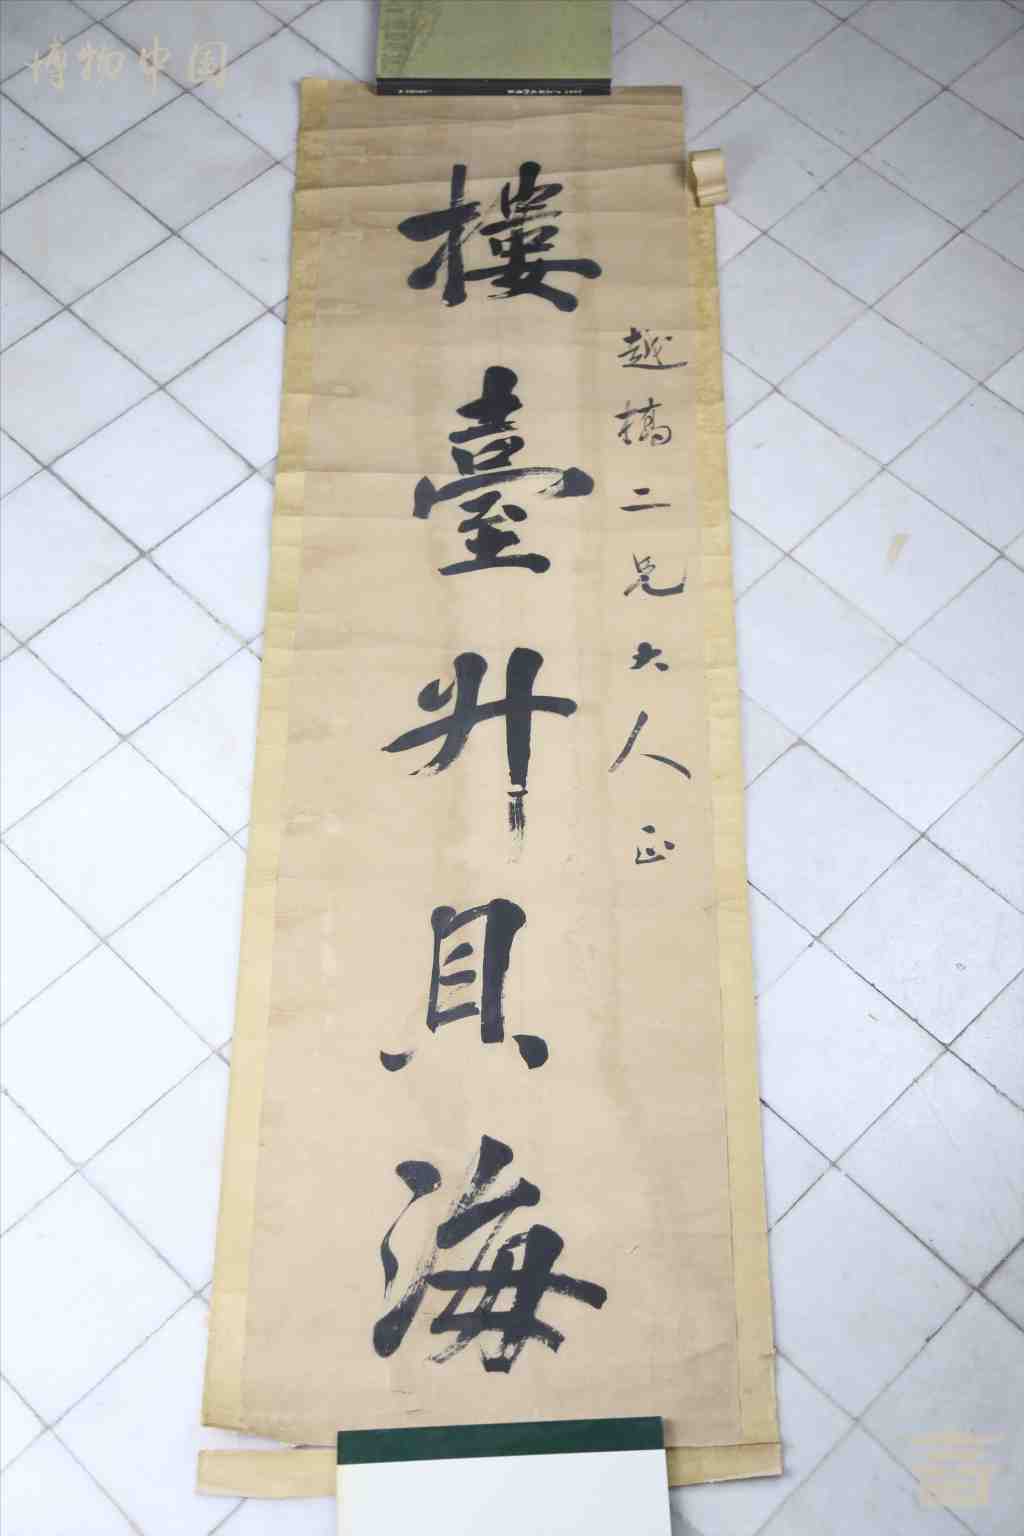 博物中国
樓臺升貝海
越槁二兄大人正